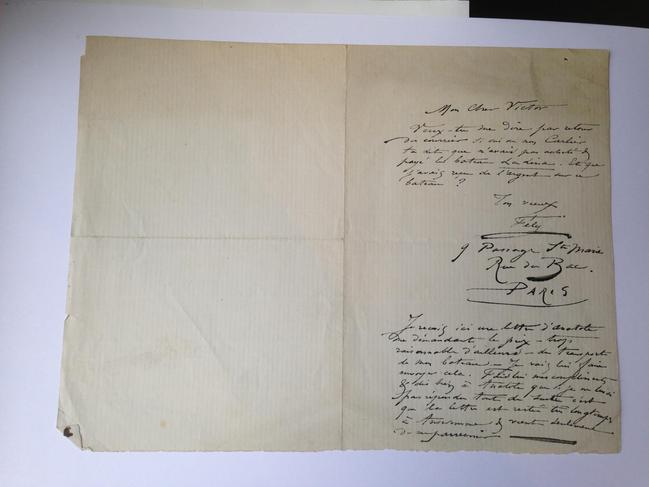 Mon Cher Victor
Veux-tu me dire par retour
du courrier si oui ou non Cartier
t'a dit que n'avait pas acheté &
payé le bateau . Et que
j'avais reçu de l'argent sur ce
bateau ?
Ton vieux
Fély
9 Passage Ste Marie
Rue du Bac.
PARIS
Je reçois ici une lettre d'Anatole
me demandant le prix - trop
raisonnable d'ailleurs - du transport
de mon bateau - Je vais lui faire
envoyer cela. mes compliments
& dis à Anatole que je ne lui ai
pas répondu tout de suite c'est
que la lettre est restée très longtemps
à & vient seulement
de me parvenir